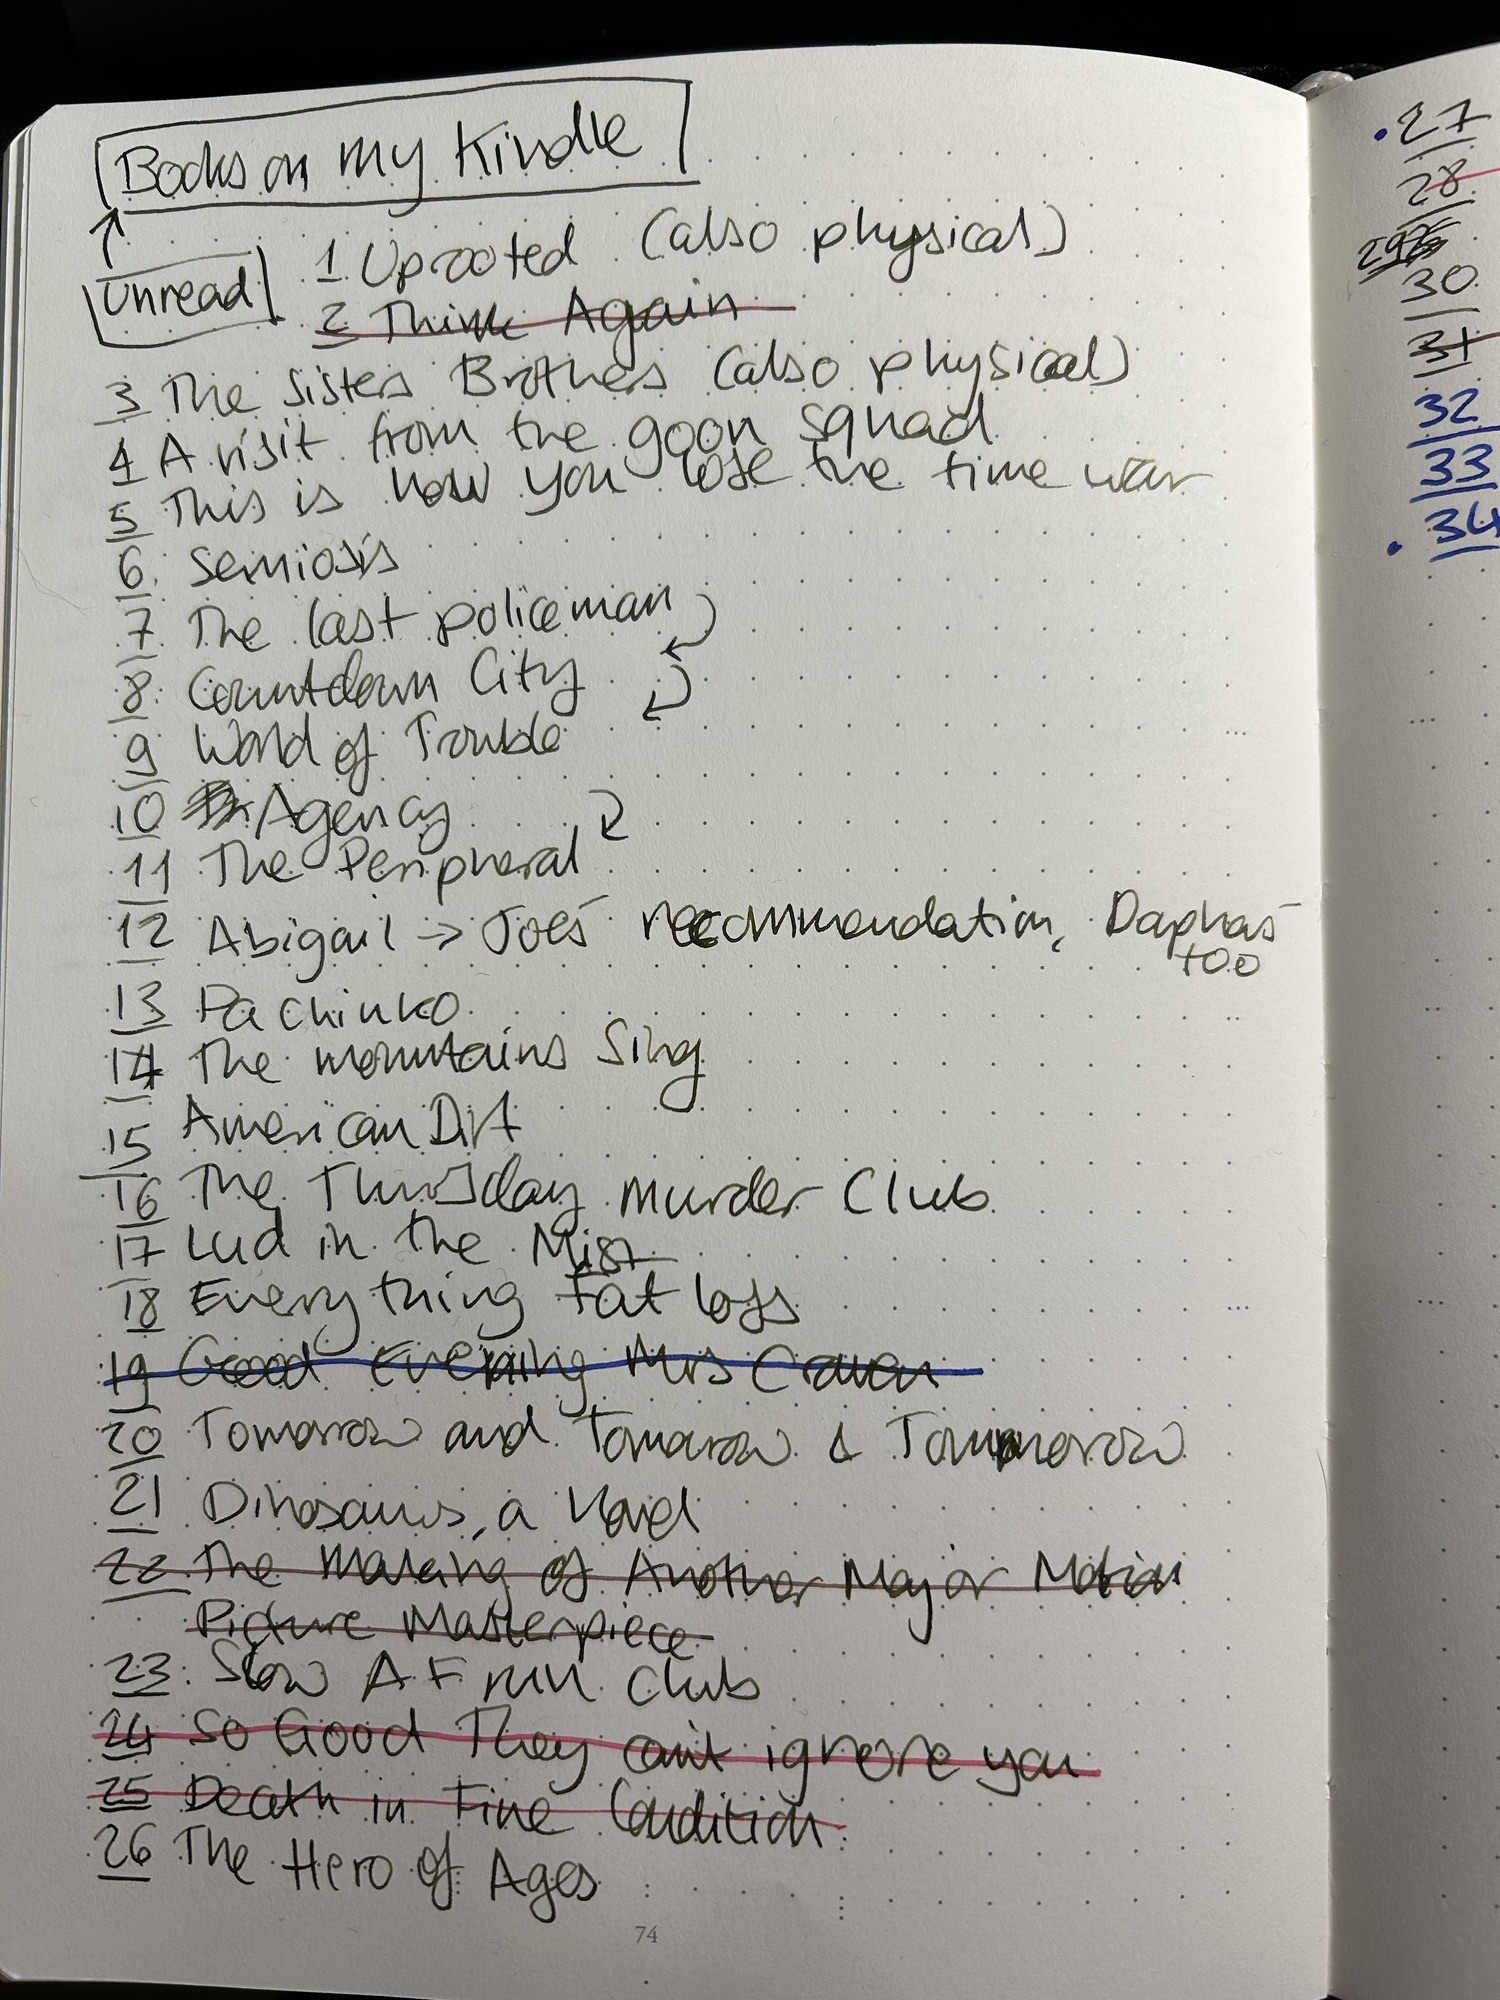 Books on my Kindle
Unread
1 Uprooted (also physical)
2 Think Again
3 The Sisters Brothers (also physical)
4 A visit from the goon squad
5 This is how you lose the time war
6 Semiosis
7 The last policeman
8 Countdown City
9 World of Trouble
10 Agency
11 The Peripheral
12 Abigail → Joe's recommendation, Daphas
too
13 Pachinko
14 The mountains Sing
15 American Dirt
16 The Thursday Murder Club
17 Lud in the Mist
18 Everything Fat loss
19 Good Evening Mrs Craven
20 Tomorrow and Tomorrow & Tomorrow
21 Dinosaurs, a Novel
22 The Making of Another Major Motion
Picture Masterpiece
23 Slow AF run Club
24 So Good They can't ignore you
25 Death in Fine Condition
26 The Hero of Ages
74
27
28
29
30
31
32
33
34